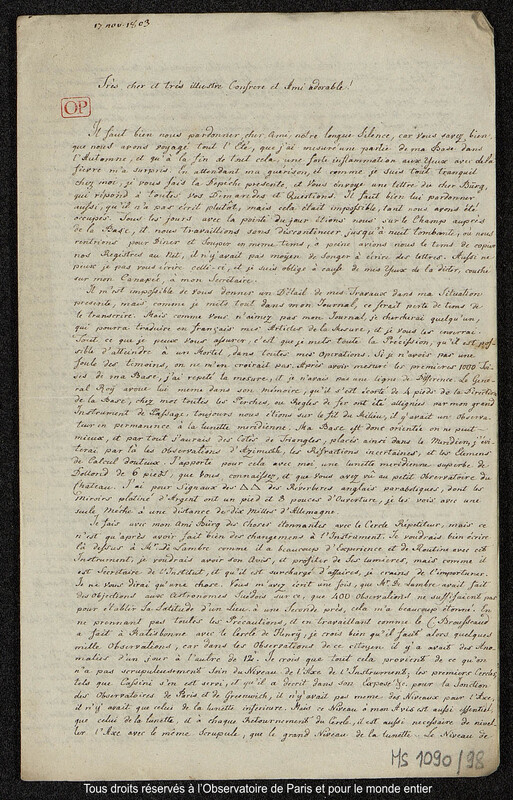 17 nov. 1803
Très cher et très illustre Confrere et Ami adorable!
OP
Il faut bien nous pardonner, cher Ami, notre longue Silence, car vous savez bien
que nous avons voyagé tout l'Eté, que j'ai mesuré une partie de ma Base dans
l'Automne, et qu'à la fin de tout cela, une forte inflammation aux Yeux avec de la
fievre m'a surpris. En attendant ma guerison, et comme je suis tout tranquil
chez moi, je vous fais la Depêche presente, et vous envoye une lettre du cher Bürg,
qui répond à toutes vos Demandes et Questions. Il faut bien lui pardonner
aussi, qu'il n'a pas écrit plutôt, mais cela était impossible, tant nous avons été
occupés. Tous les jours avec la pointe du jour étions nous sur le Champ auprès
de la Base, et nous travaillions sans discontinuer jusqu'à nuit tombante, où nous
rentrions pour Diner et Souper en même tems, à peine avions nous le tems de copier
nos Registres au Net, il n'y avait pas moyen de songer à écrire des lettres. Aussi ne
puis je pas vous écrire celle-ci, et je suis obligé à cause de mes Yeux de la dicter, couché
sur mon Canapé, à mon Secretaire.
Il m'est impossible de vous donner un Détail de mes Travaux dans ma Situation
presente, mais comme je mets tout dans mon Journal, ce serait perte de tems de
le transcrire. Mais comme vous n'aimez pas mon Journal, je chercherai quelqu'un,
qui pourra traduire en français mes Articles de la Mesure, et je vous les enverrai.
Tout ce que je peux vous assurer, c'est que je mets toute la Précision, qu'il est pos-
sible d'atteindre à un Mortel, dans toutes mes Operations. Si je n'avois pas une
foule des temoins, on ne m'en croirait pas. Après avoir mesuré les premieres 1000 Toi-
ses de ma Base, j'ai repeté la mesure, et je n'avais pas une ligne de Difference. Le Gene-
ral Roy avoue lui même dans son mémoire, qu'il s'est écarté de 4 pieds de la Direction
de la Base, chez moi toutes les Perches, ou Regles de fer ont été alignées par mon grand
Instrument de Passage. toujours nous étions sur le fil du Milieu, il y avait un Observa-
teur en permanence à la lunette meridienne. Ma Base est donc orientée on ne peut
mieux, et par tout j'aurais des Cotés de Triangles, placés ainsi dans le Meridien, j'évi-
terai par là les Observations d'Azimuth, les Refractions incertaines, et les Elemens
de Calcul douteux. J'apporte pour cela avec moi une lunette meridienne superbe de
Dollond de 6 pieds, que vous connaissez, et que vous avez vû au petit Observatoire du
Château. J'ai pour Signaux des △△ des Reverberes anglais paraboliques, dont les
Miroirs platiné d'Argent ont un pied et 3 pouces d'Ouverture, je les vois avec une
seule Mêche à une distance de dix Milles d'Allemagne.
Je fais avec mon Ami Bürg des choses étonnantes avec le Cercle Répetiteur, mais ce
n'est qu'après avoir fait bien des changemens à l'Instrument. Je voudrais bien écrire
là dessus à Mr. de Lambre comme il a beaucoup d'Experience et de Routine avec cet
Instrument, je voudrais avoir son Avis, et profiter de ses lumieres, mais comme il
est Secretaire de l'Institut, et qu'il est surchargé d'affaires, je crains de l'importuner.
Je ne vous dirai qu'une chose. Vous m'avez écrit une fois, que Mr. De Lambre avait fait
des Objections aux Astronomes Suédois sur ce, que 400 Observations ne suffisaient pas
pour établir la Latitude d'un Lieu à une Seconde près, cela m'a beaucoup étonné. En
ne prennant pas toutes les Précautions, et en travaillant comme le C. Broussaud
a fait à Ratisbonne avec le Cercle de Henry, je crois bien qu'il faut alors quelques
mille Observations, car dans les Observations de ce citoyen il y a avait des Ano-
malies d'un jour à l'autre de 12". Je crois que tout cela provient de ce qu'on
n'a pas scrupuleusement Soin du Niveau de l'Axe de l'Instrument, les premiers Cercles,
tels que Cassini s'en est servi, et qu'il a decrit dans son Exposé &c. pour la Jonction
des Observatoires de Paris et de Greenwich, il n'y avait pas meme des Niveaux pour l'Axe,
il n'y avait que celui de la lunette inferieure. Mais ce Niveau à mon Avis est aussi essentiel
que celui de la lunette, et à chaque Retournement du Cercle, il est aussi necessaire de nivel-
ler l'Axe avec le même Scrupule, que le grand Niveau de la lunette. Le Niveau de
MS 1090/98
Tous droits réservés à l'Observatoire de Paris et pour le monde entier